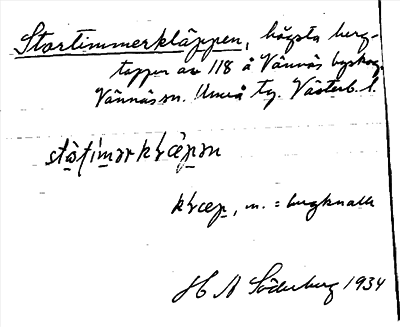 Stortimmerkläppen, högsta berg-
toppen av 118 å Vännäs byskog,
Vännäs sn. Umeå tg. Västerb. l.
stɷ̀ţi´mərkɫæ̀pən
kɫæp, m. = bergknalle
H A Söderberg 1934